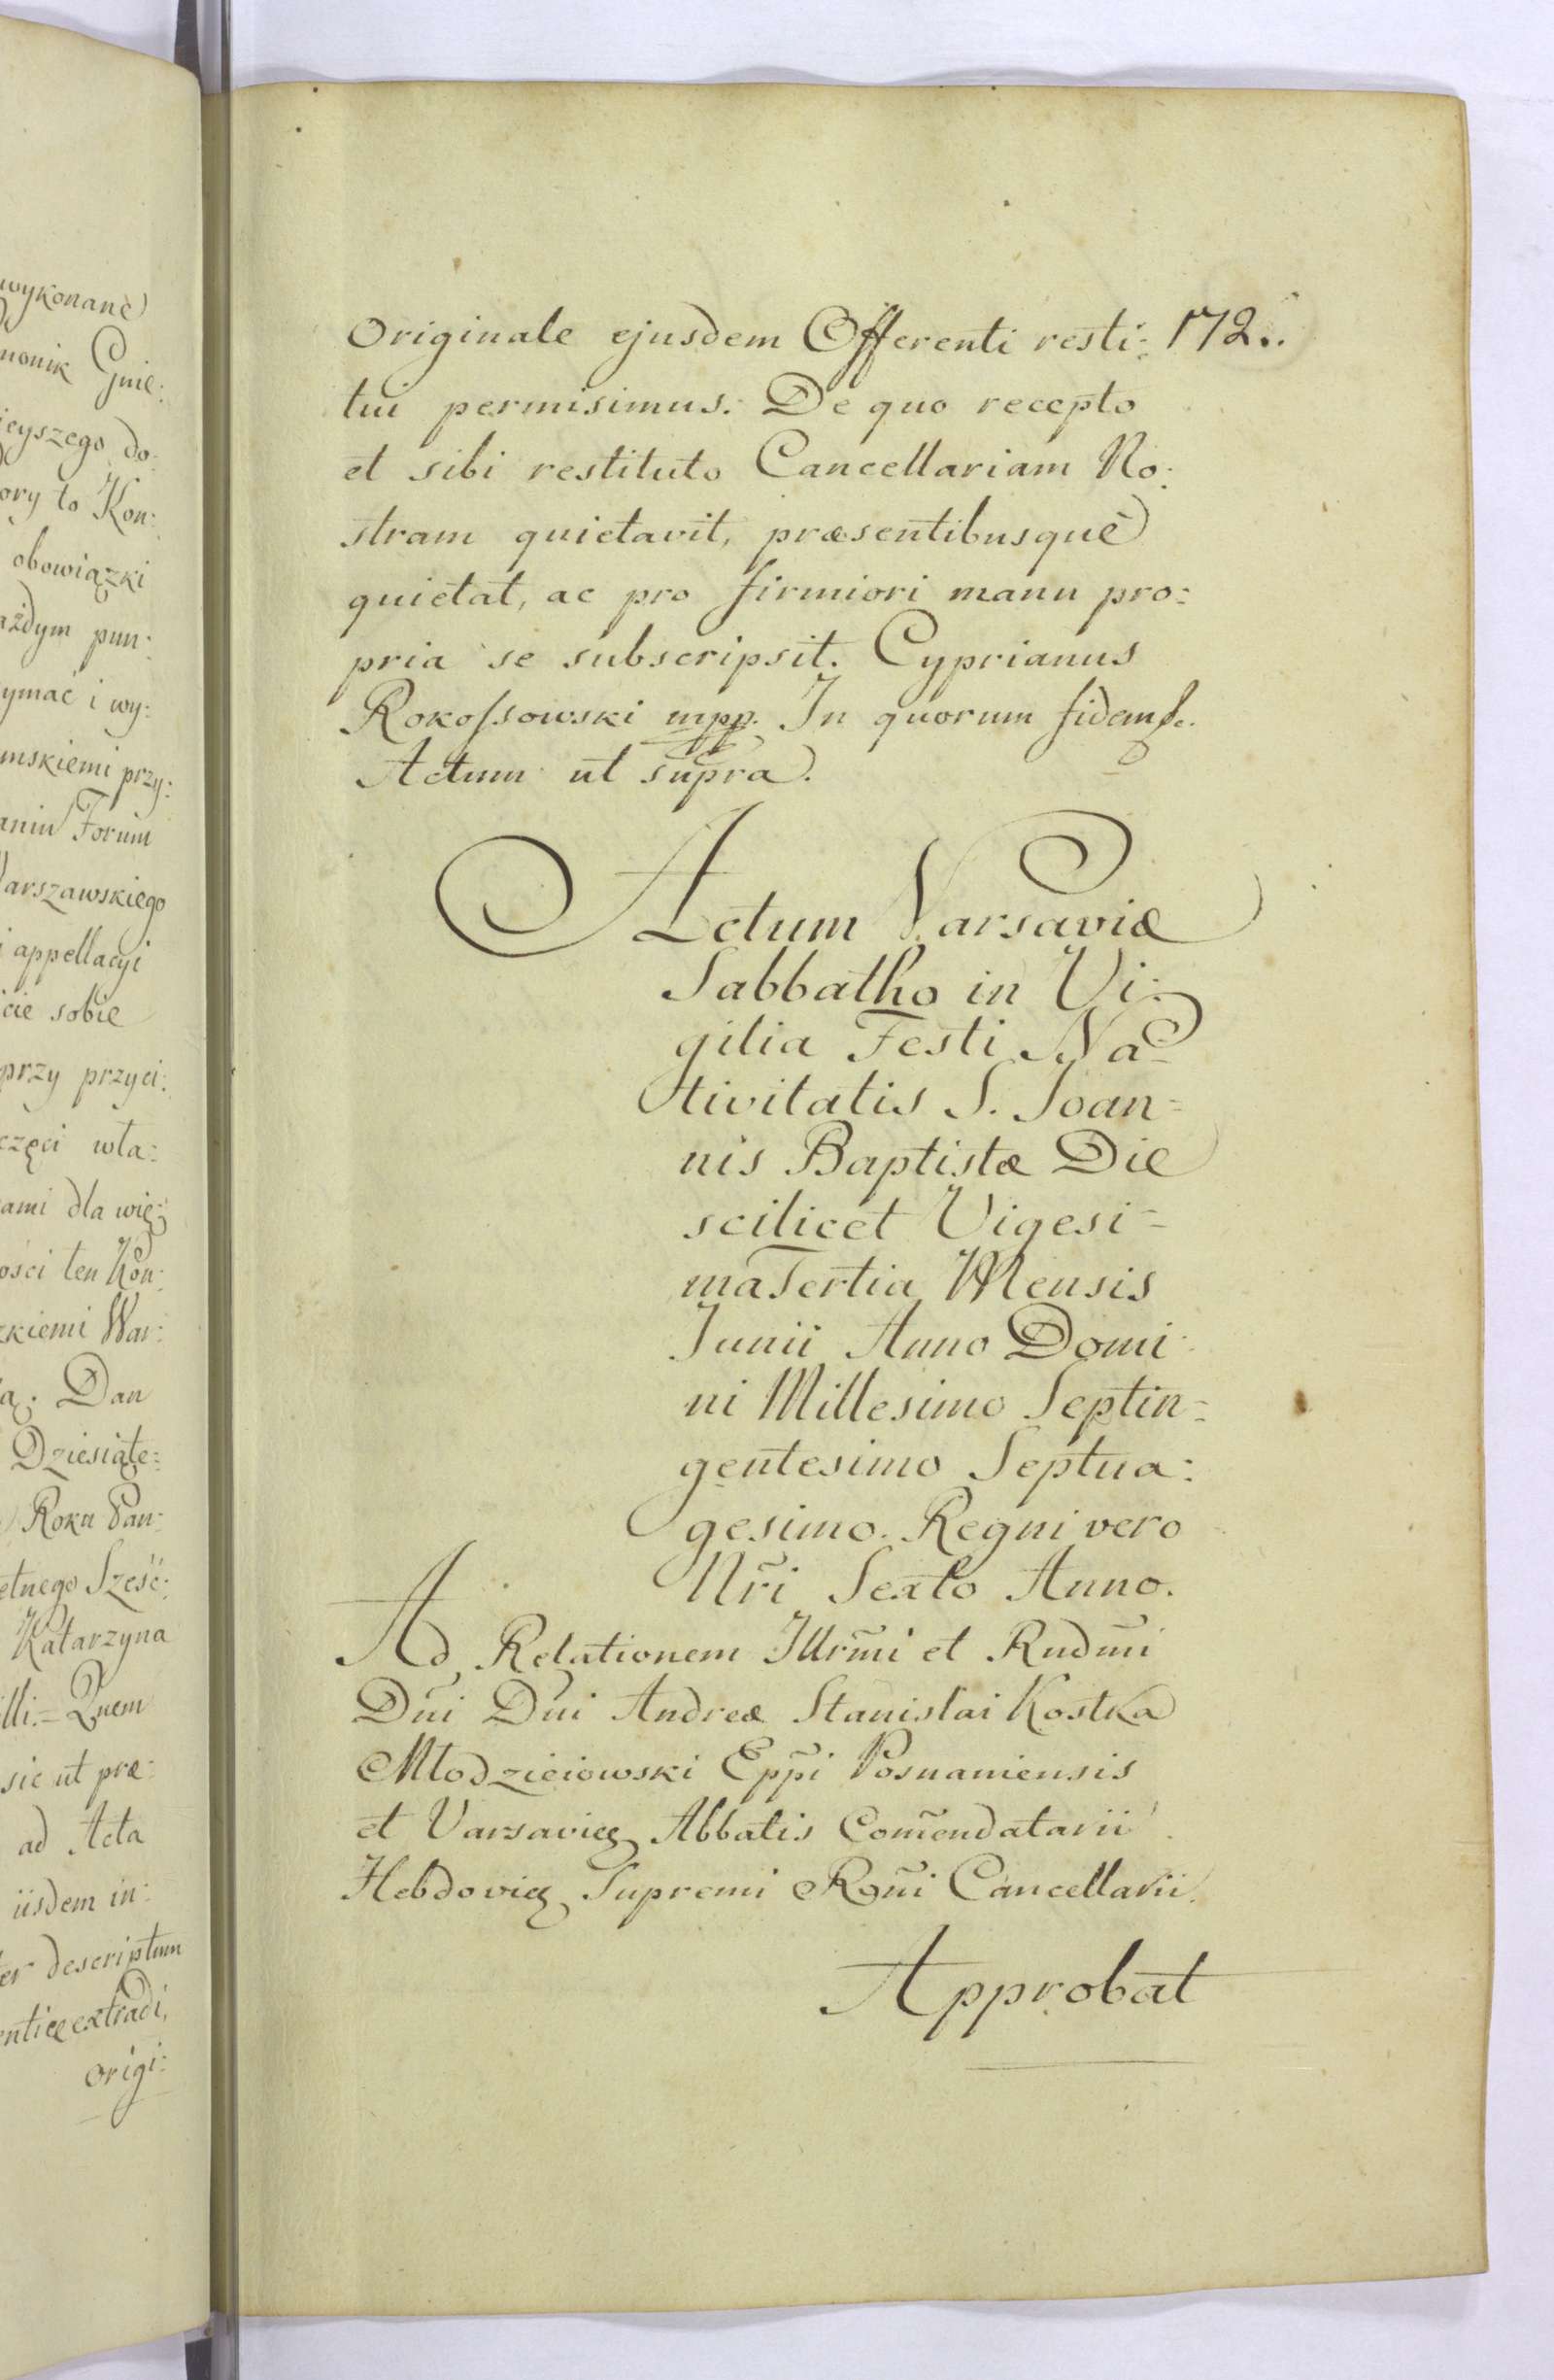 wykonane
monik Gnie:
ieyszego do:
ory to Kon:
obowiązki
ażdym pun:
ymać i wy:
mskiemi przy:
aniu Forum
Warszawskiego
i appellacyi
cie sobie
przy przyci:
częci wła:
ami dla wię:
ości ten Kon:
zkiemi War:
Dan
Dziesiąte:
Roku Pan:
etnego Sześć:
Katarzyna
lli.= Quem
sic ut præ:
ad Acta
iisdem in:
er descriptum
enticę extradi,
origi:
Originale ejusdem Offerenti resti: 172..
tui permisimus. De quo recepto
et sibi restituto Cancellariam No:
stram quietavit, præsentibusquè
quietat, ac pro firmiori manu pro:
pria se subscripsit. Cyprianus
Rokoſsowski mpp. In quorum fidem &c.
Actum ut supra.
Actum Varsaviæ
Sabbatho in Vi:
gilia Festi Na=
tivitatis S. Joan=
nis Baptistæ Die
scilicet Vigesi=
ma Tertia Mensis
Junii Anno Domi:
ni Millesimo Septin=
gentesimo Septua:
gesimo. Regni vero
Nr̃i Sexto Anno.
Ad Relationem Illrm̃i et Rudm̃i
Dñi Dñi Andreæ Stanislai Kostka
Młodzieiowski Epp̃i Posnaniensis
et Varsavięę Abbatis Com̃endatarii
Hebdovię Supremi Rñi Cancellarii.
Approbat